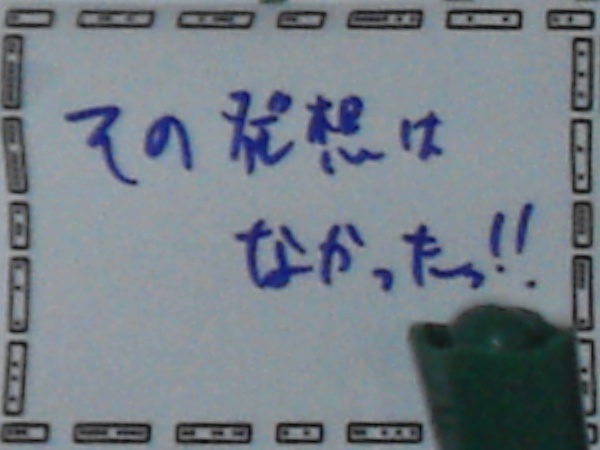 その発想は
なかったっ!!